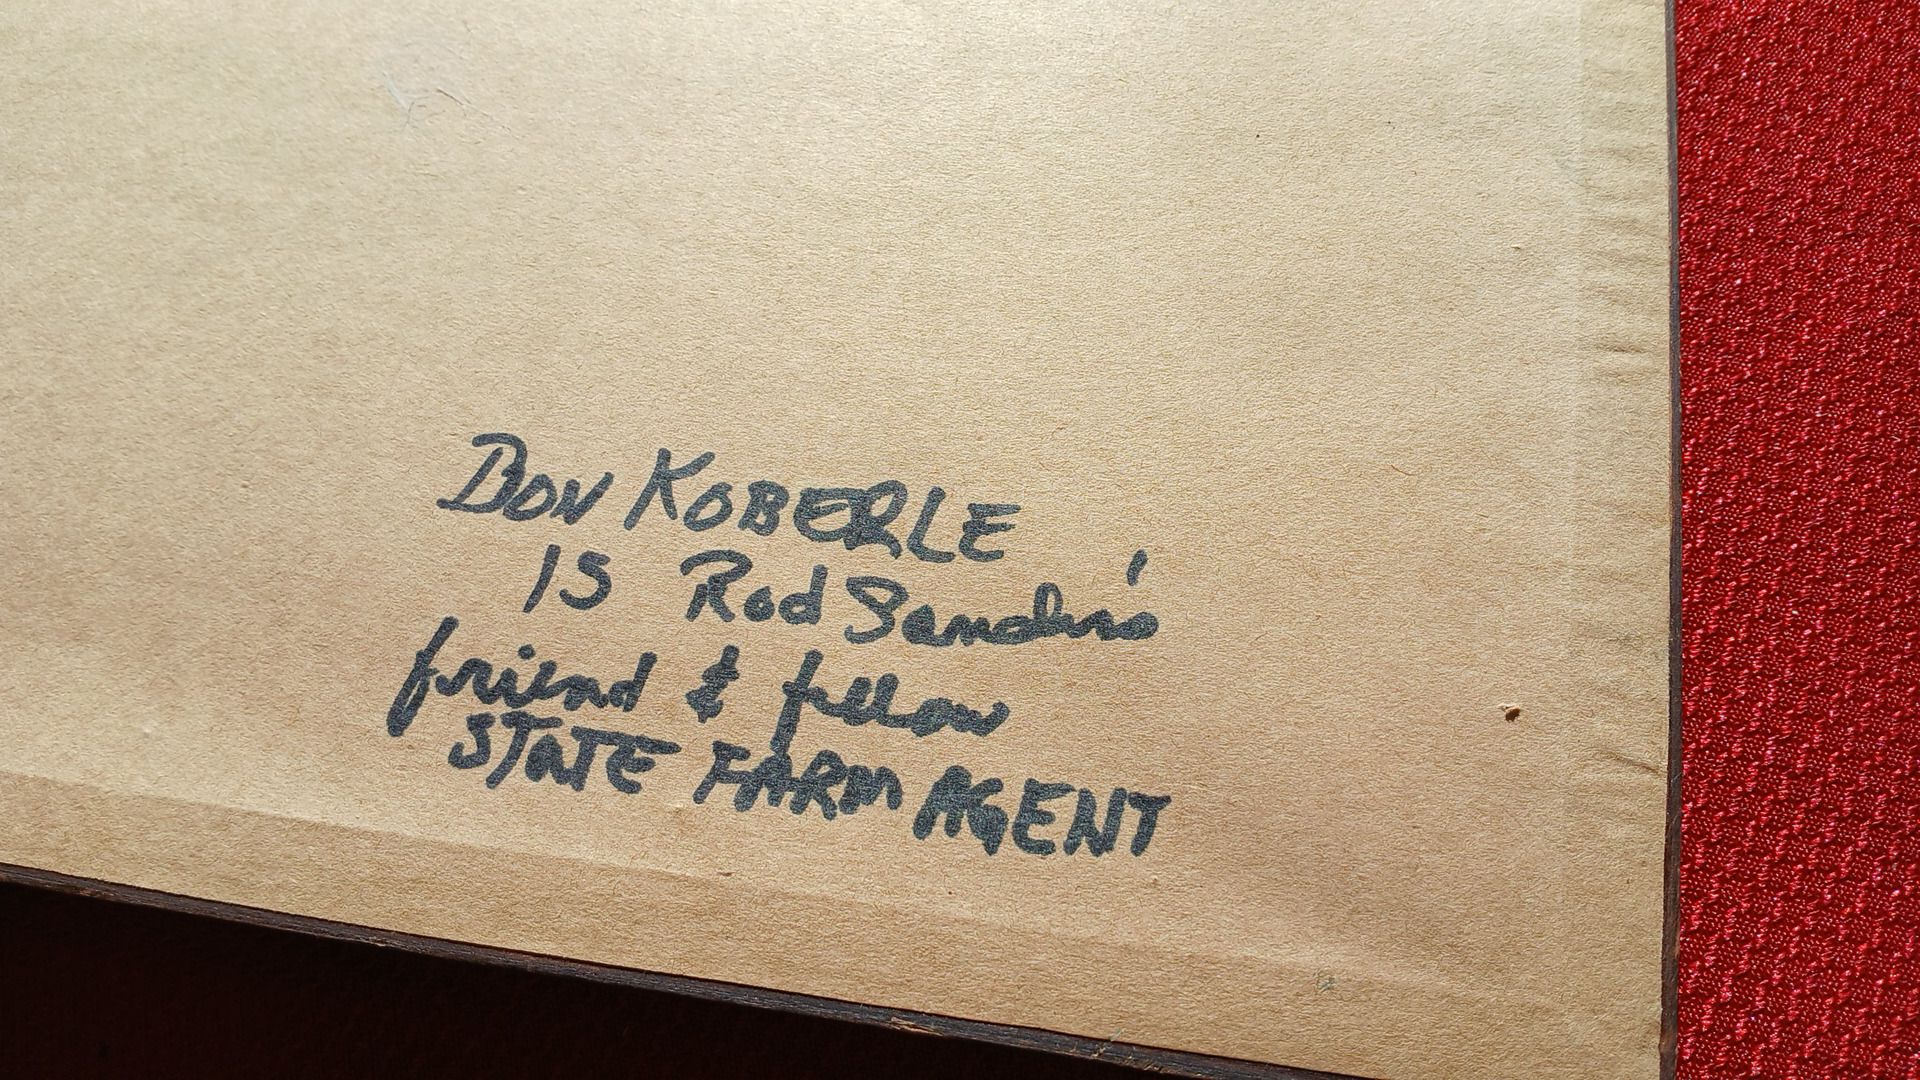 DON KOBERLE
IS Rod Sanders'
friend & fellow
STATE FARM AGENT